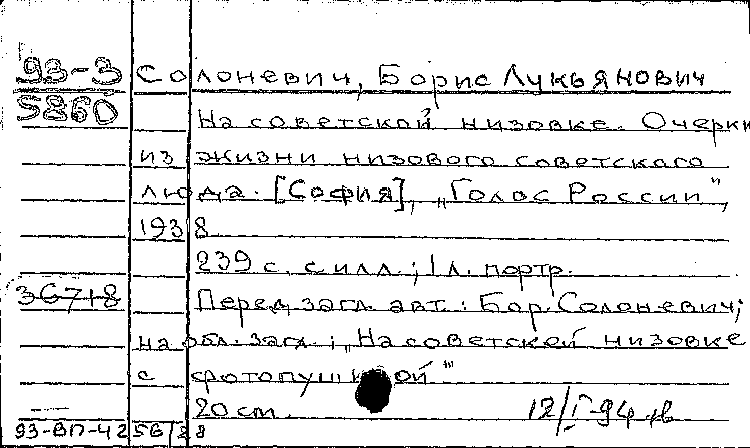 93-3 Солоневич, Борис Лукьянович
5860
На советской низовке. Очерки
из жизни низового советского
люда. [София], „Голос России",
1938
239 с. с илл.; 1 л. портр.
36718 Перед загл. авт.: Бор. Солоневич;
на обл. загл.: „На советской низовке
с фотопушкой"
20 см. 12/I-94
93-ВП-42 56/28